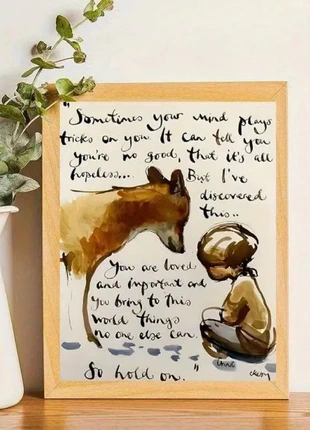 "Sometimes your mind plays
tricks on you. It can tell you
you're no good, that it's all
hopeless...
But I've
discovered
this..
You are loved
and important and
you bring to this
world things
no one else can.
So hold on."